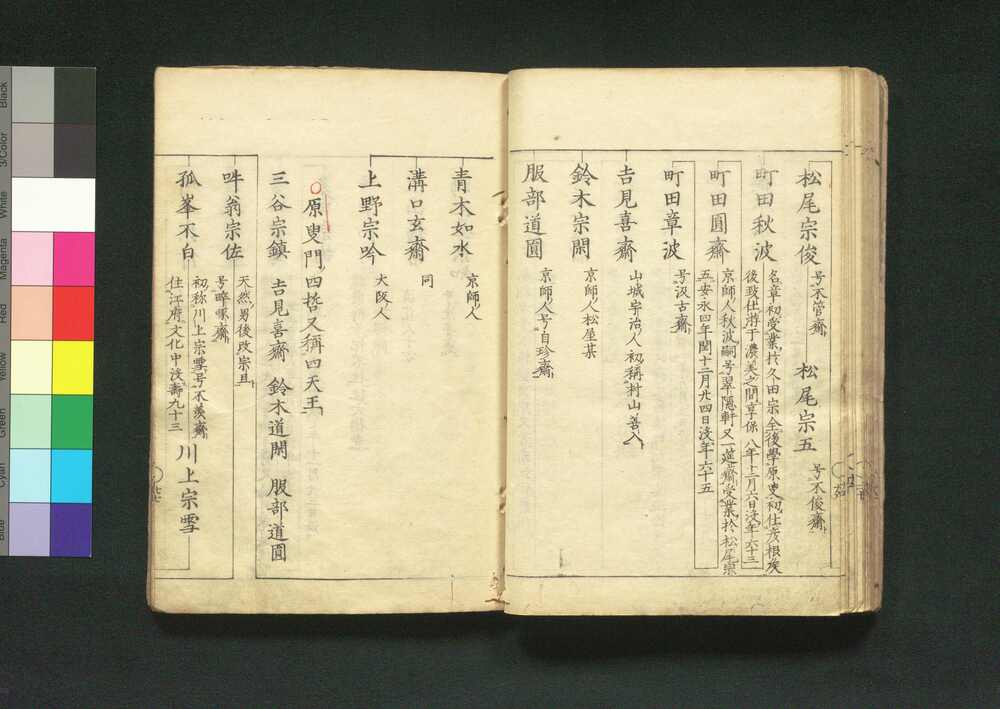 松尾宗俊 号不管齋 松尾宗五 号不俊齋
町田秋波 名章初受業於久田宗全後學原叟初仕彦根矦
後致仕游于濃美之間享保八年十二月六日没年六十三
町田圓齋 京師人秋波嗣号翠隱軒又一蓮齋受業於松尾宗
五安永四年閏十二月廿四日没年六十五
町田章波 号汲古齋
吉見喜齋 山城宇治人初稱村山善入
鈴木宗閑 京師人松屋某
服部道圓 京師人号自珍齋
青木如水 京師人
溝口玄齋 同
上野宗吟 大阪人
原叟門四哲又稱四天王
三谷宗鎮 吉見喜齋 鈴木道閑 服部道圓
吽翁宗佐 天然男後改宗旦
号啐啄齋
孤峯不白 初称川上宗雪号不羨齋
住江府文化中没壽九十三 川上宗雪
Black
3/Color
White
Magenta
Red
Yellow
Green
Cyan
Blue